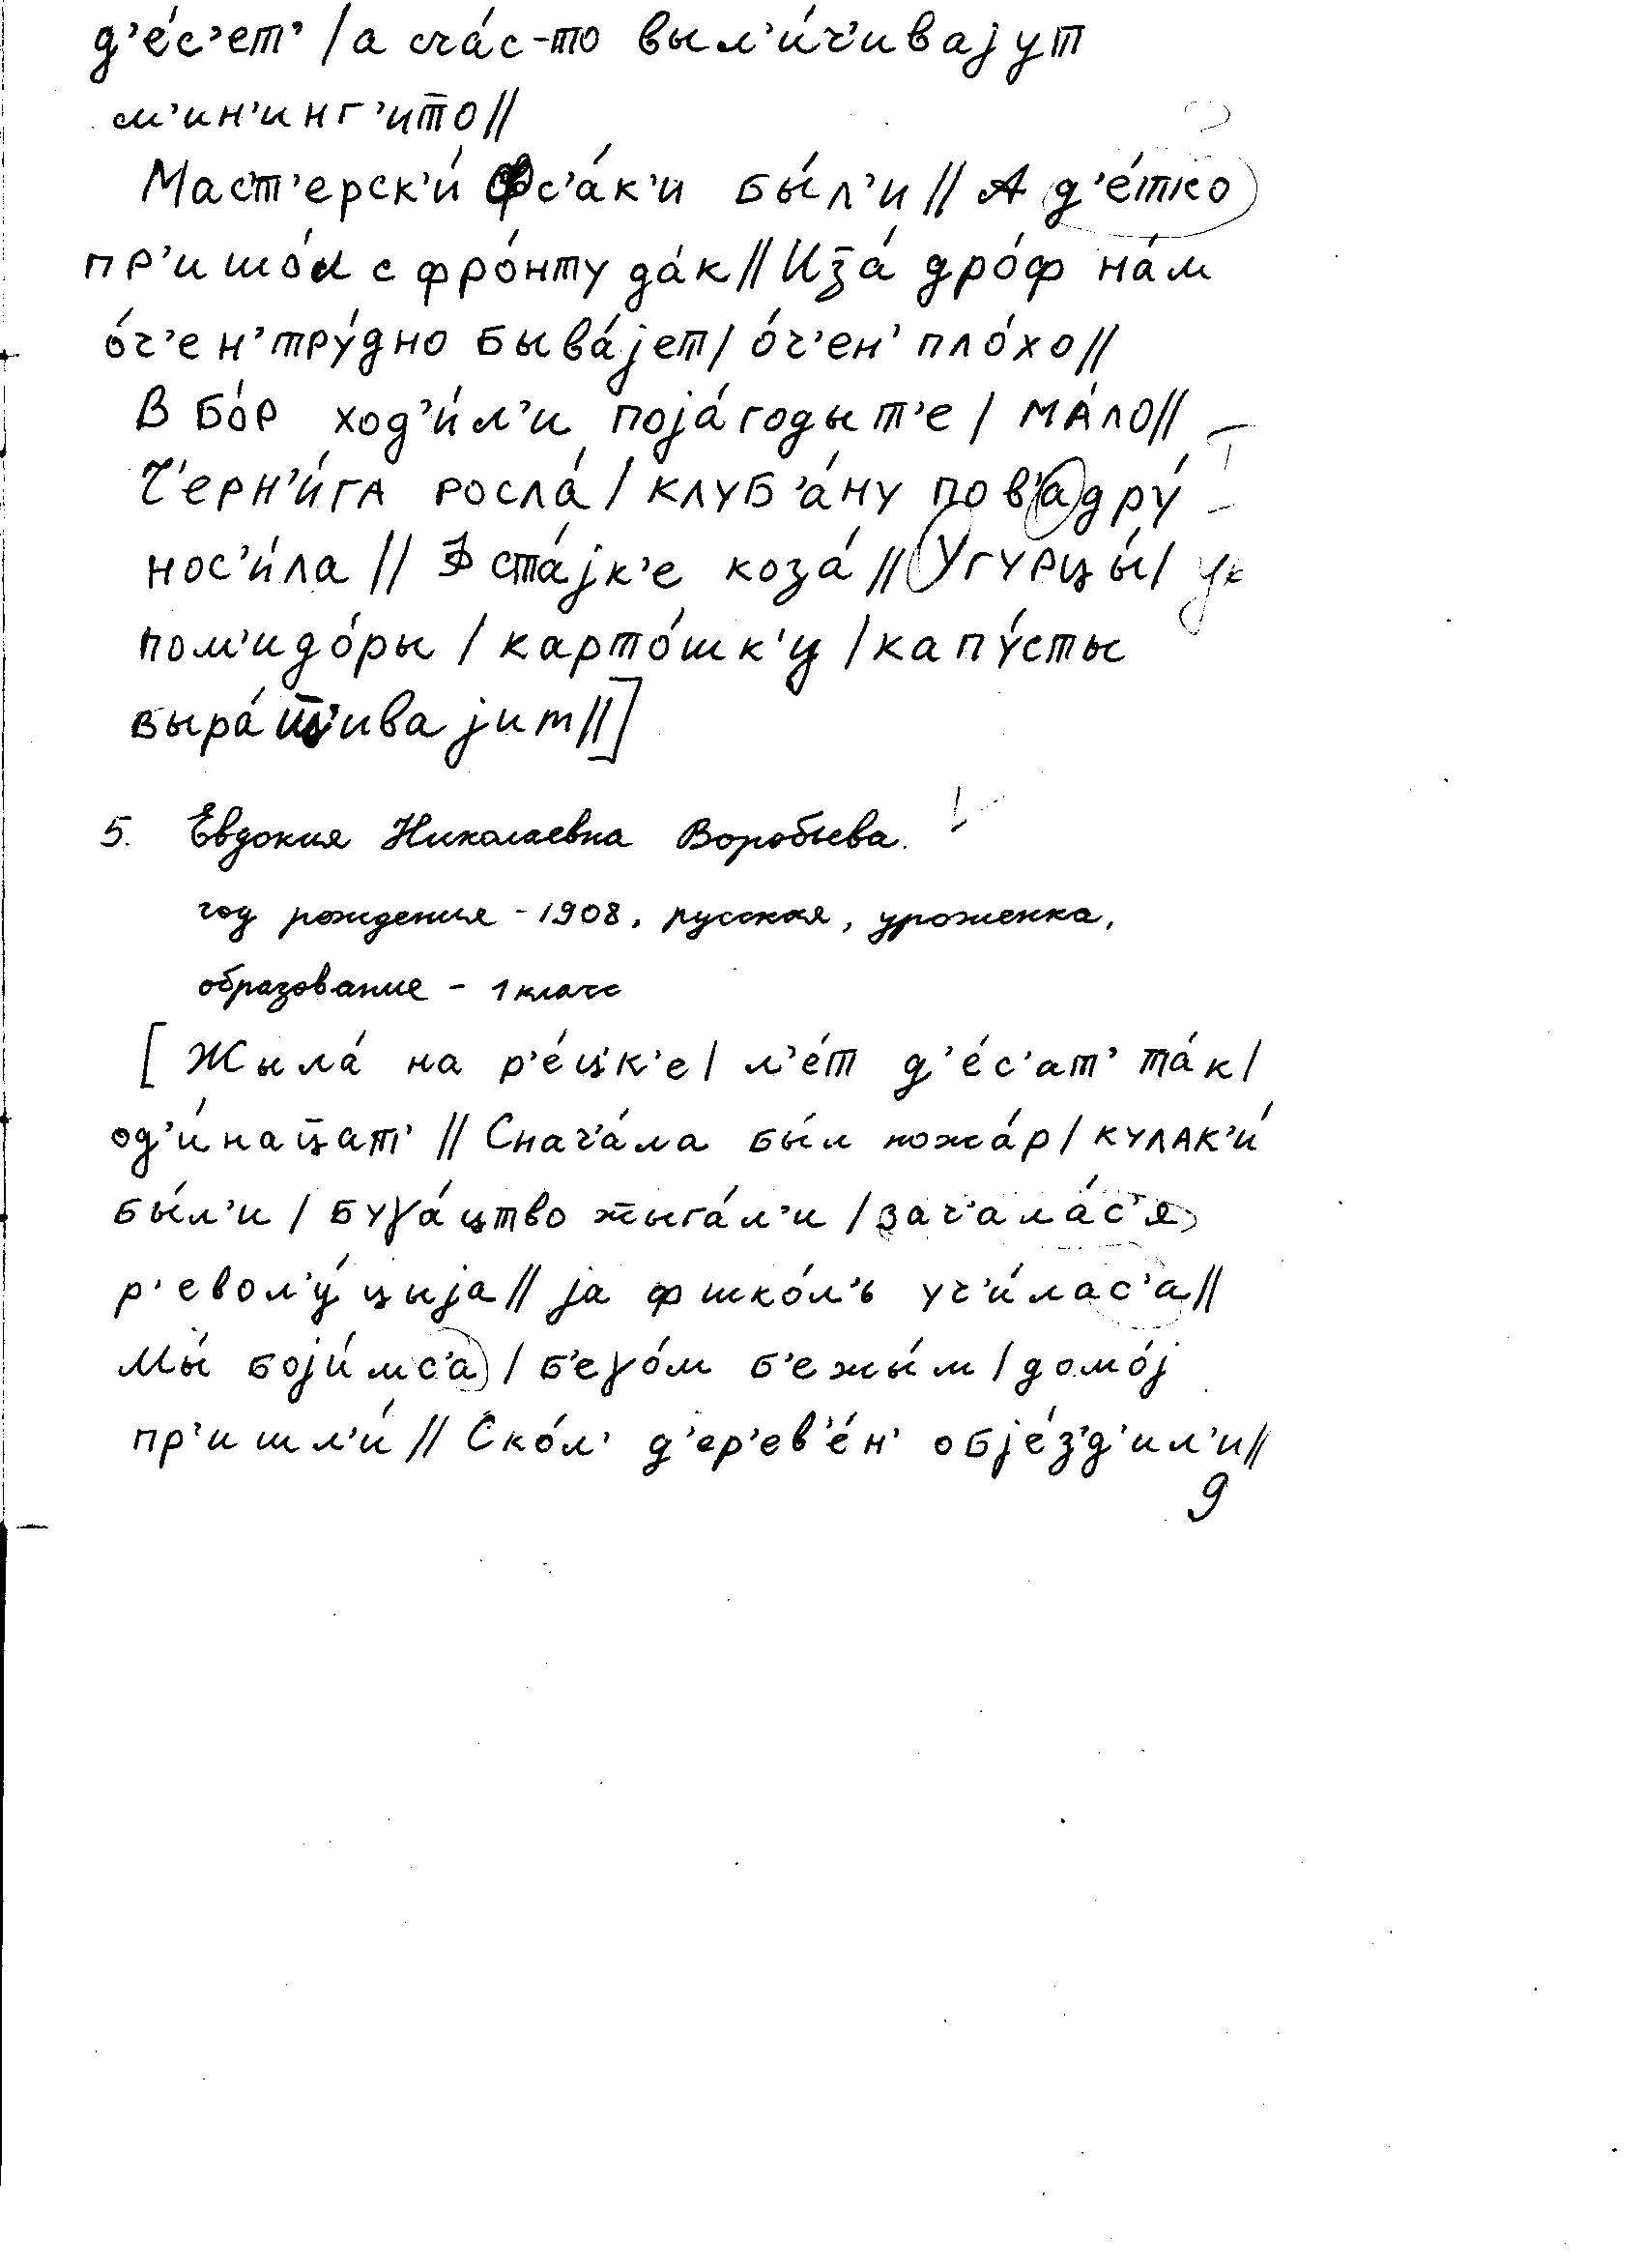 д’е́с’ет’ / а сча́с-то выл’и́ч’ивајут
м’ин’инг’ит̄о //
Маст’ерск’и́ фс’а́к’и бы́л’и // А д’е́тко
пр’ишо́л с фро́нту да́к // Из̄а́ дро́ф на́м
о́ч’ен’ тру́дно быва́јет / о́ч’ен’ пло́хо //
В бо́р ход’и́л’и поја́годы т’е / ма́ло //
Ч’ерн’и́га росла́ / клуб’а́ну пов’адру́
нос’и́ла // З ста́јк’е коза́ // Угурцы́ / ук
пом’идо́ры / карто́шк’у / капу́сты
выра́ш̄’ивајит // ]
5. Евдокия Николаевна Воробьева.
год рождения - 1908, русская, уроженка,
образование - 1 класс
[ Жыла́ на р’е́ц’к’е / л’е́т д’е́с’ат’ та́к /
од’и́нац̄ат’ // Снач’а́ла бы́л пожа́р / кулак’и́
бы́л’и / буγа́цтво жыга́л’и / зач’ала́с’я
р’евол’у́цыја // ја ф шко́л’ь уч’и́лас’а //
Мы́ боји́мс’а / б’еγо́м б’ежы́м / домо́ј
пр’ишл’и́ // Ско́л’ д’ер’ев’е́н’ објéз’д’ил’и //
9